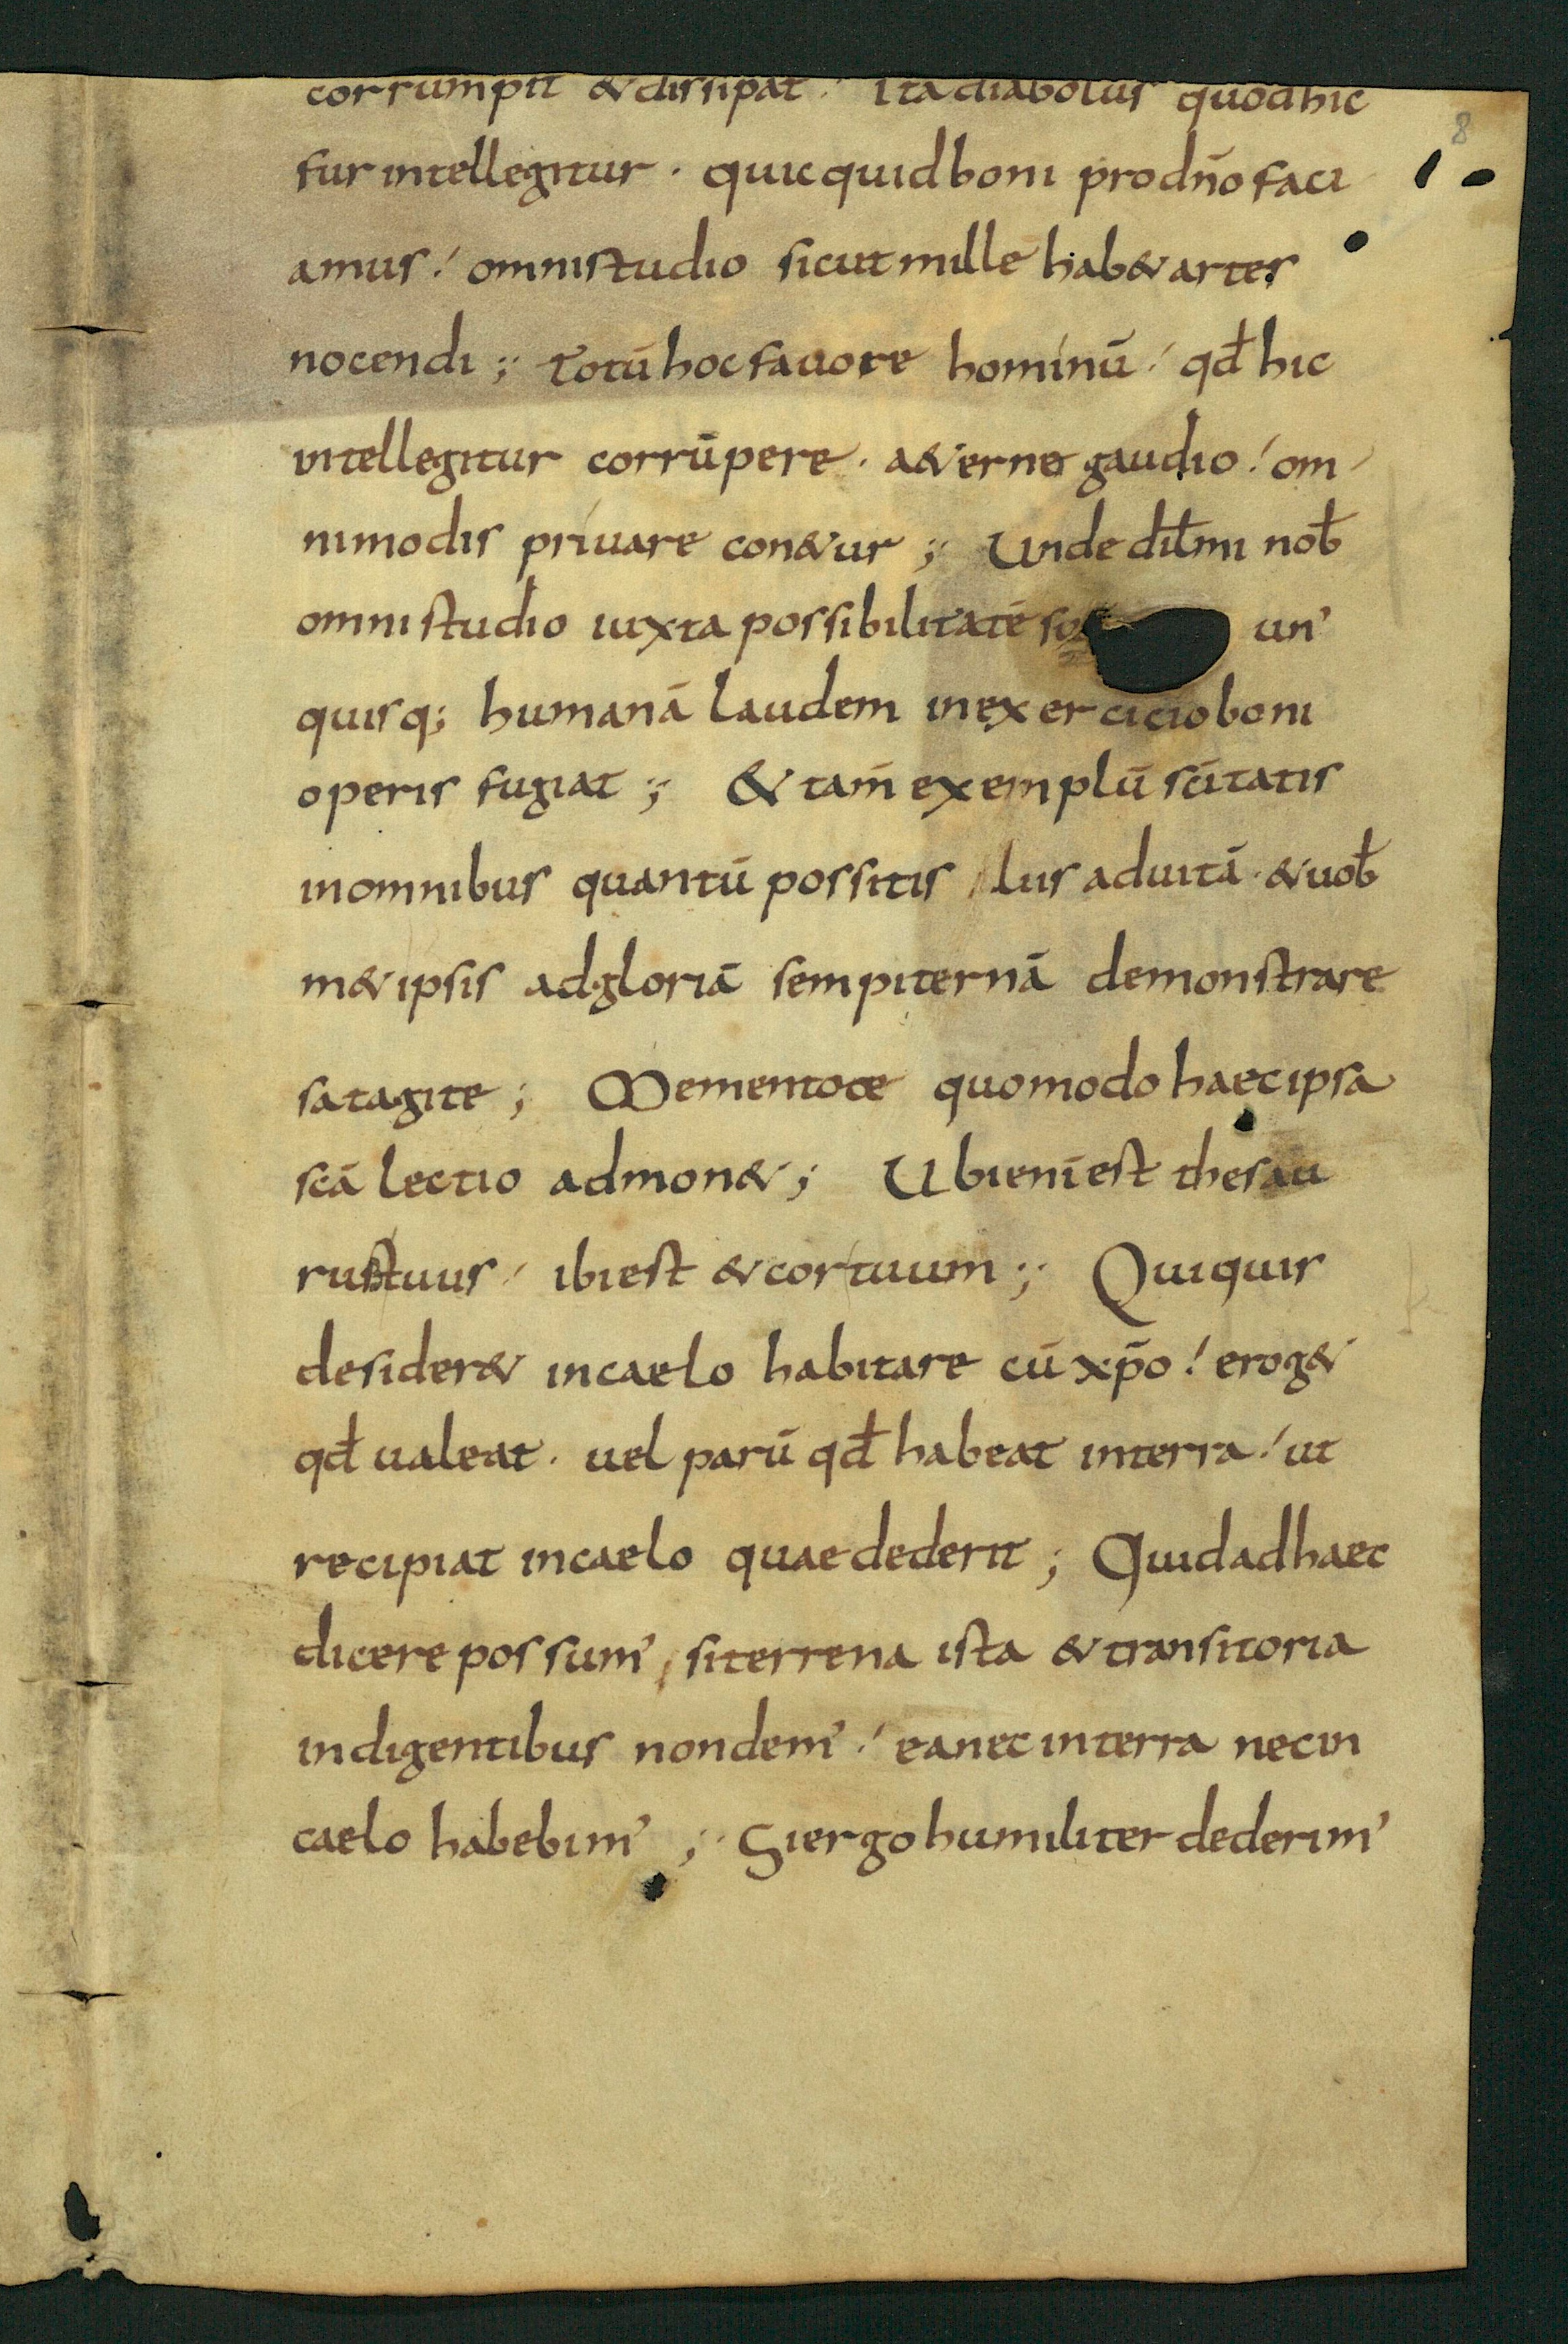 corrumpit & dissipat. Ita diabolus quod hic
fur intellegitur. quicquid boni pro dño faci
amus! omni studio sicut mille hab& artes
nocendi; Totū hoc fauore hominū! qđ hic
intellegitur corrūpere. a&erno gaudio! om
nimodis priuare con&ur; Unde dilmi nob
omni studio iuxta possibilitatē un'
quisq; humanā laudem in exercicio boni
operis fugiat; & tam̄ exemplū sc̄itatis
in omnibus quantū possitis lus ad uitā. & uob
m&ipsis ad gloriā sempiternā demonstrare
satagite; Mementote quomodo haec ipsa
scā lectio admon&; Ubi enī est thesau
rus tuus! ibi est & cor tuum; Qui quis
desider& in caelo habitare cū xp̄o! erog&
qđ ualeat. uel parū qđ habeat in terra! ut
recipiat in caelo quae dederit; Quid ad haec
dicere possum', si terrena ista & transitoria
indigentibus non dem'! ea nec in terra nec in
caelo habebim'; Si ergo humiliter dederim'
8